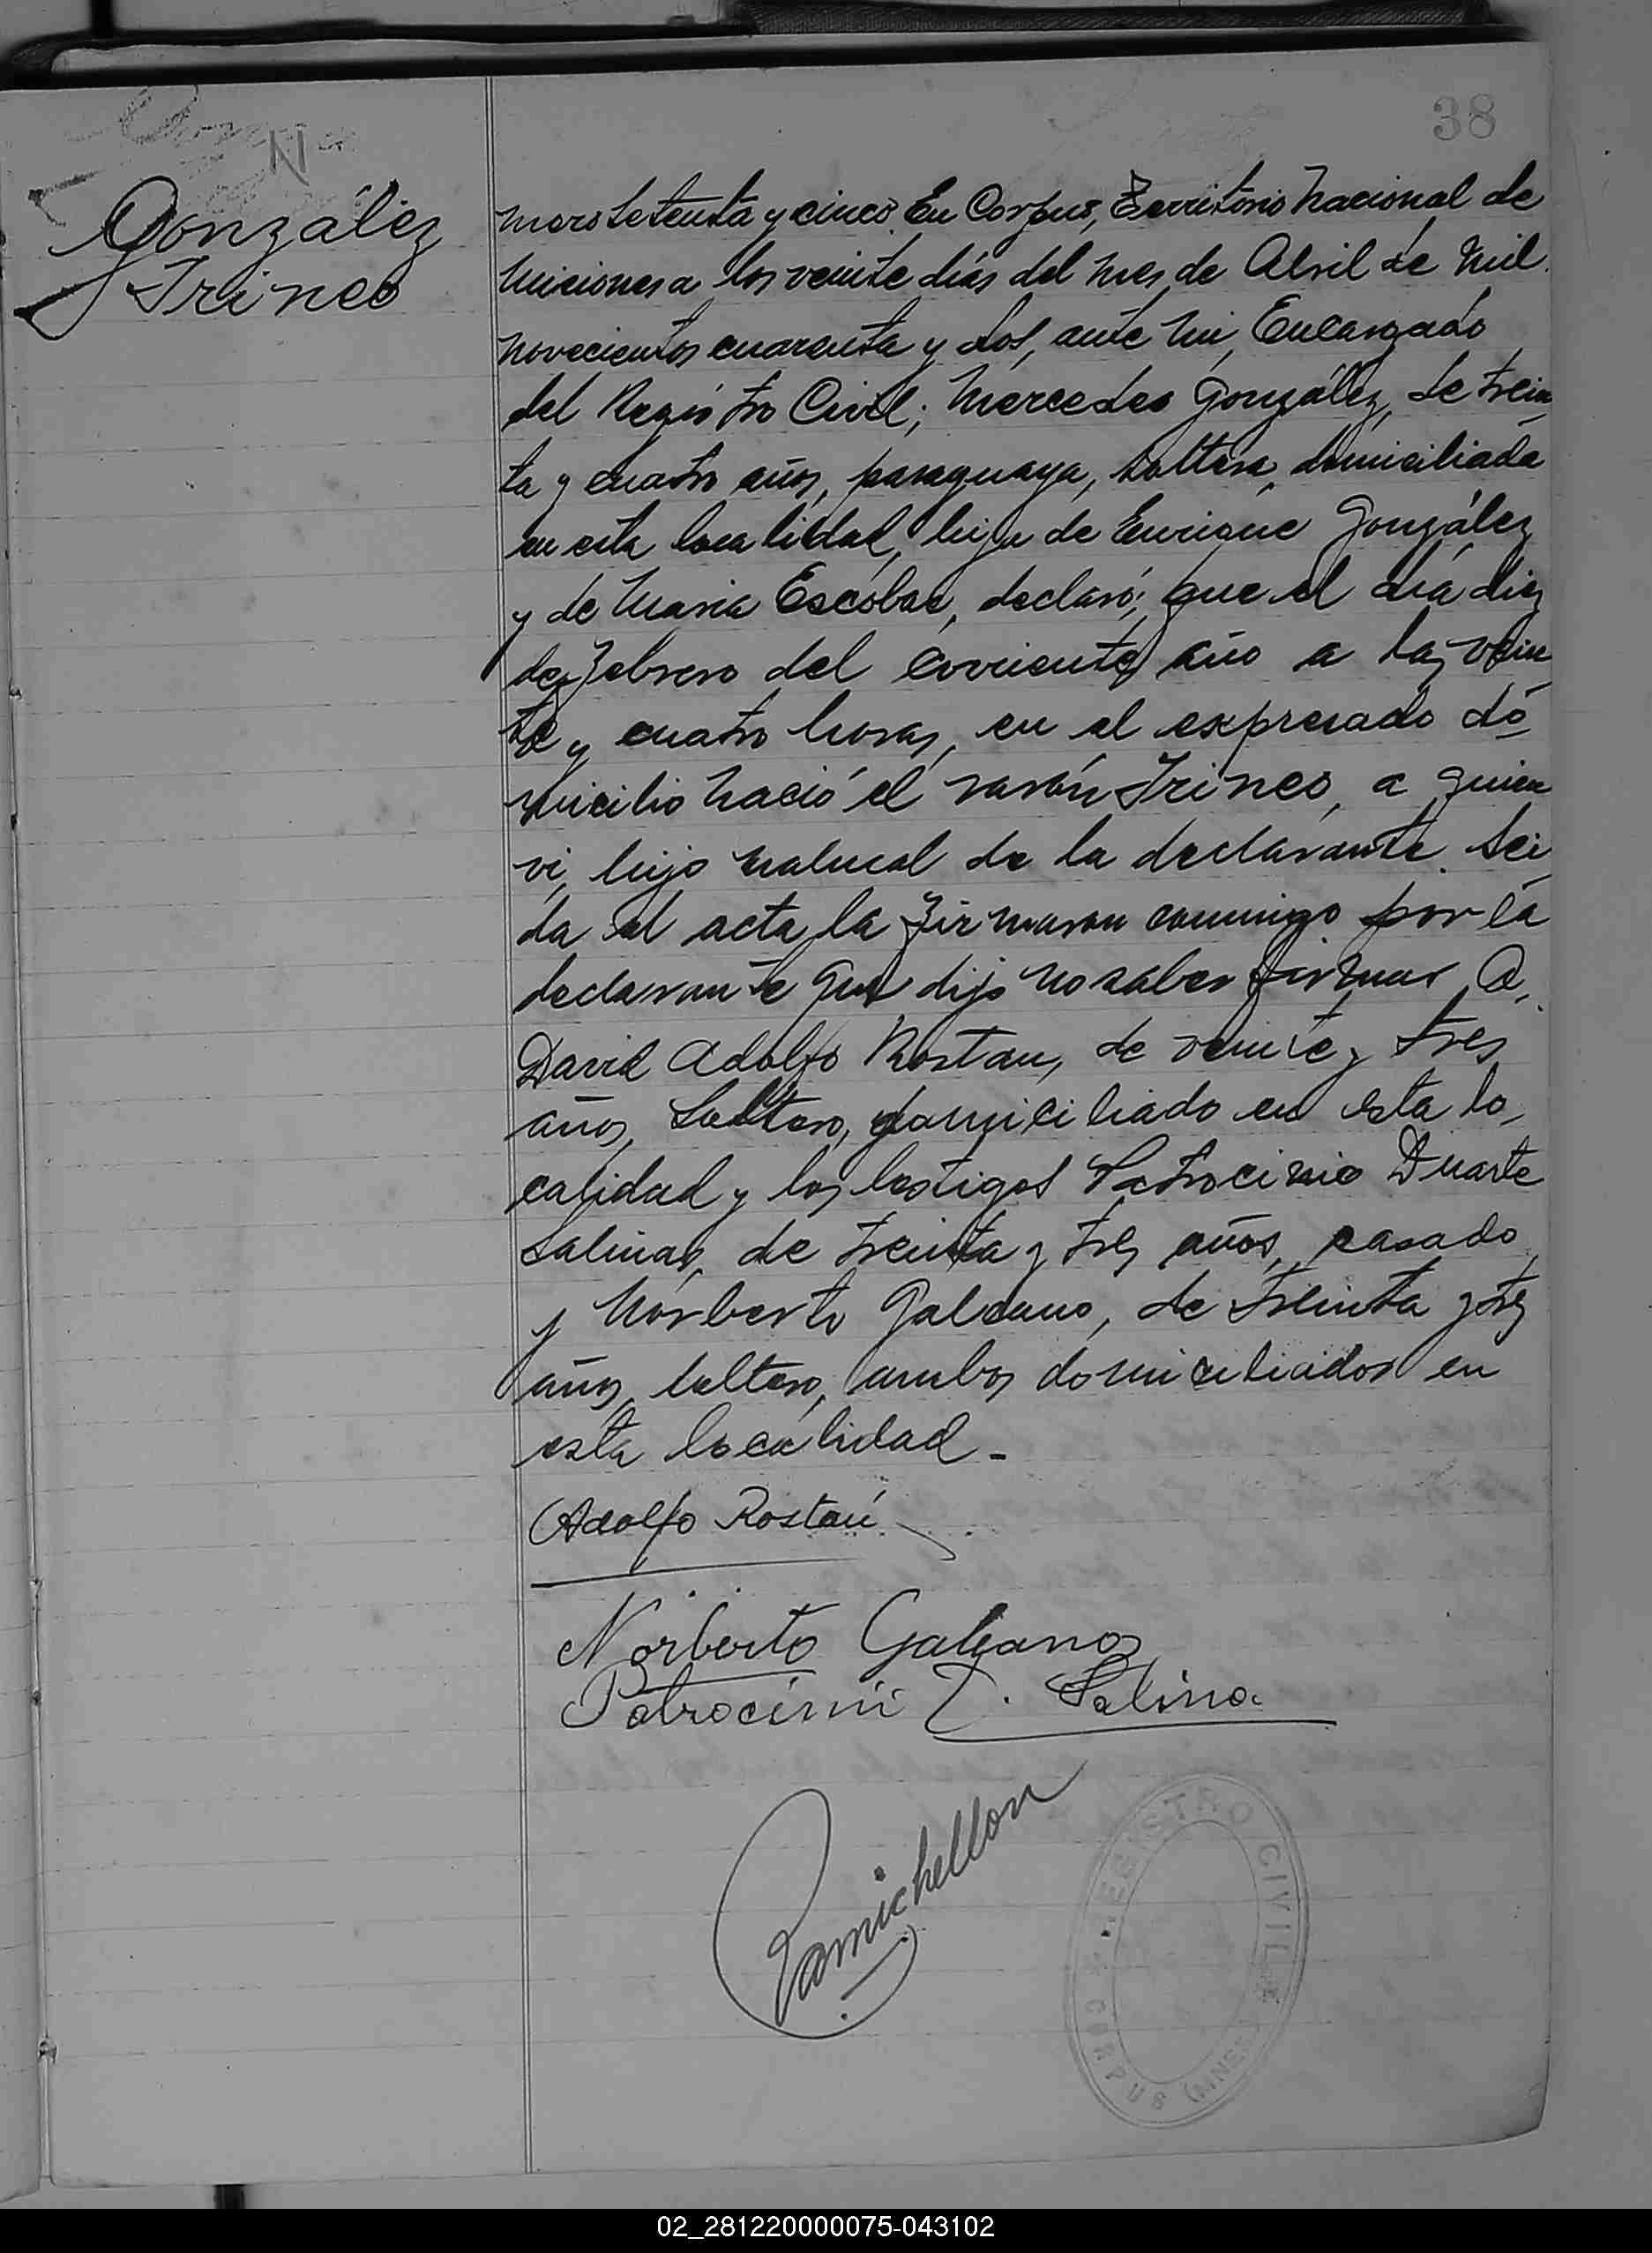 38
González
Irineo
mero setenta y cinco. En Corpus, Territorio Nacional de
Misiones a los veinte días del mes de Abril de mil
novecientos cuarenta y dos, ante mi, Encargado
del Registro Civil; Mercedes González, de trein
ta y cuatro años, paraguaya, soltera, domiciliada
en esta localidad, hija de Enrique González
y de Maria Escobar, declaró; que el día diez
de Febrero del corriente año a las vein
te y cuatro horas, en el expresado do
micilio nació el varón Irineo, a quien
vi, hijo natural de la declarante. Lei
da el acta la firmaron conmigo por la
declarante que dijo no saber firmar
David Adolfo Rostan, de veinte y tres
años, soltero, domiciliado en esta lo
calidad y los testigos Patrocinio Duarte
Salinas, de treinta y tres años, casado
y Norberto Galeano, de treinta y tres
años, soltero, ambos domiciliados en
esta localidad -
Adolfo Rostán
Norberto Galeano
Patrocinio D. Salina
REGISTRO CIVIL
CORPUS (MNES)
02_281220000075-043102